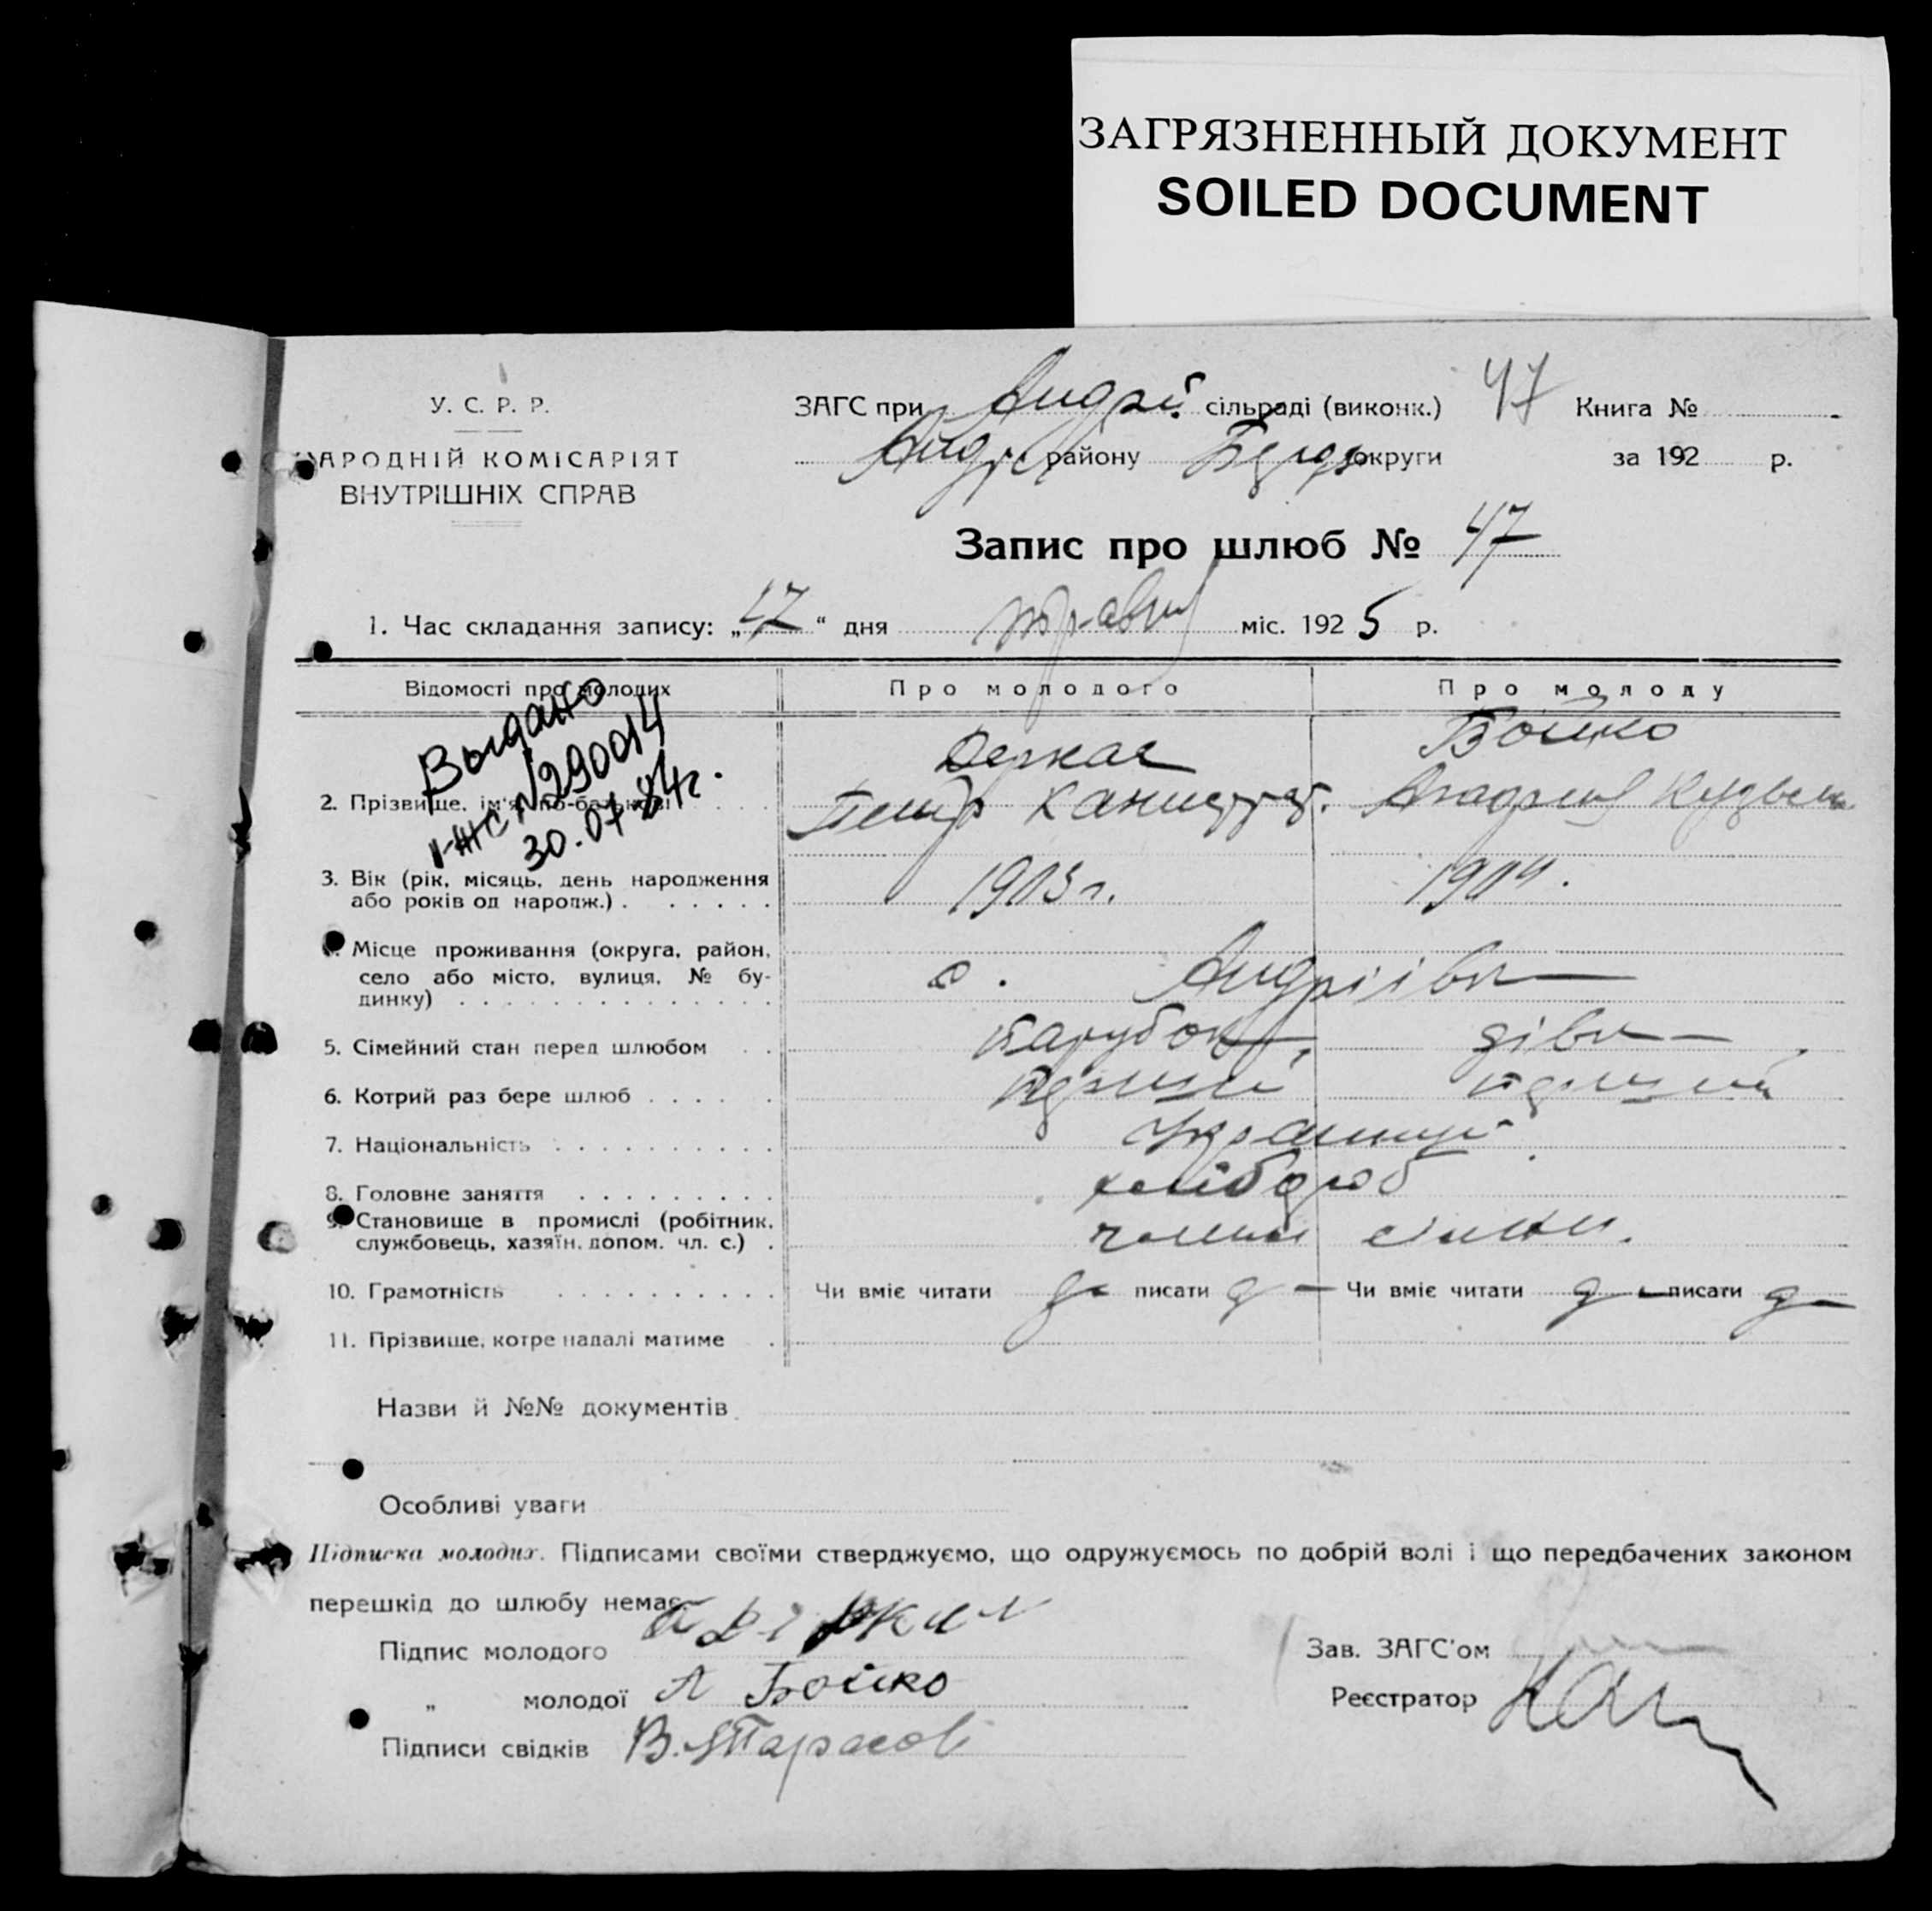 ЗАГРЯЗНЕННЫЙ ДОКУМЕНТ
SOILED DOCUMENT
У. С. Р. Р.
НАРОДНІЙ КОМІСАРІЯТ
ВНУТРІШНІХ СПРАВ
ЗАГС при Андрії сільраді (виконк.) 47 Книга №
Андр району округи за 192 р.
Запис про шлюб № 47
1. Час складання запису: „ “ дня травня міс. 1925 р.
Відомості про молодих
Про молодого
Про молоду
Выдано
№290014
30.07.84г.
2. Прізвище, ім'я, по-батькові
Деркач
Петр
Бойко
3. Вік (рік, місяць, день народження
або років од народж.)
1903 г.
1904.
4. Місце проживання (округа, район,
село або місто, вулиця, № бу-
динку)
с. Андріївка
5. Сімейний стан перед шлюбом парубок, дівка
6. Котрий раз бере шлюб перший перший
7. Національність українці
8. Головне заняття хлібороб
9. Становище в промислі (робітник,
службовець, хазяїн, допом. чл. с.)
члени сімї.
10. Грамотність Чи вміє читати писати Чи вміє читати писати
11. Прізвище, котре надалі матиме
Назви й №№ документів
Особливі уваги
Підписка молодих. Підписами своїми стверджуємо, що одружуємось по добрій волі і що передбачених законом
перешкід до шлюбу немає.
Підпис молодого
„ молодої А Бойко
Підписи свідків В. Тарасов
Зав. ЗАГС'ом
Реєстратор